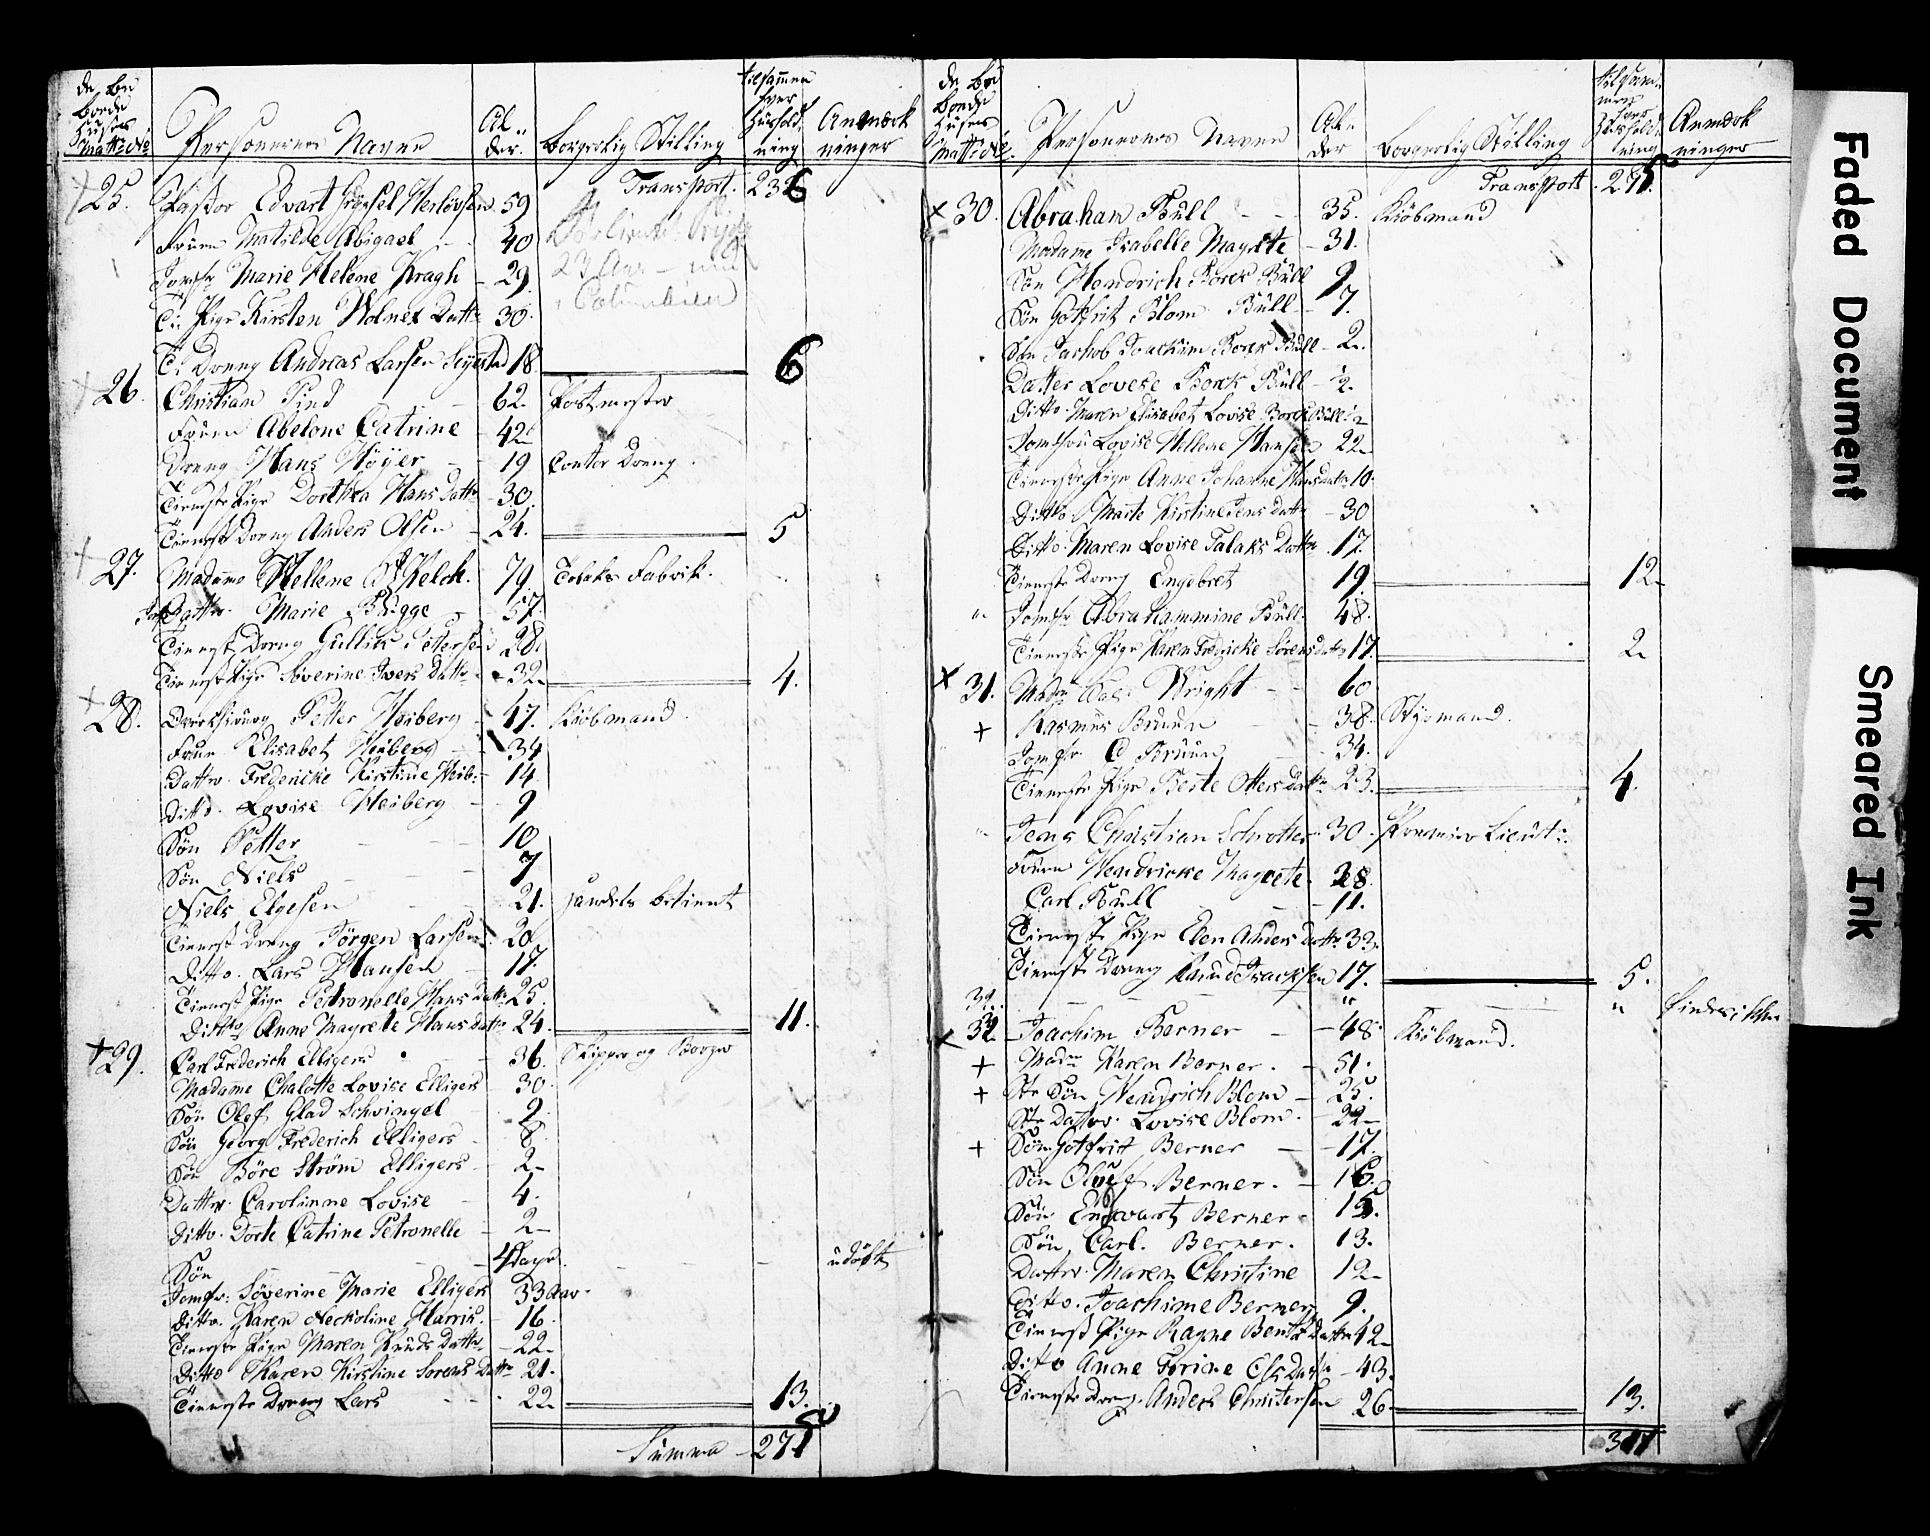 de be
boede
Huses
Matr: No
Personernes Navne
Al-
der.
borgerlig Stilling
tilsammen
hver
Huushold-
ning
Anmærk
ninger
Transport. 236
25. Pastor Edvart Herlovsen 59
Fruen Matilde Abigael 40
Jomfr Marie Helene Kragh - 29.
Ti: Pige Kirsten Holmer Dattr 30.
Ti Dreng Andreas Larsen 18. 6
26. Christian Pind 62. Postmester
Fruen Abelone Catrine - 42
Dreng Hans Høyer - 19 Contor Dreng.
Tieneste Pige Dorthea Hans Dattr 30.
Tieneste Dreng Anders Olsen - 24. 5
27. Madame Hellene Welch. 79. Tobaks Fabrik.
Jomf Datter. Marie Bugge 57.
Tienest Dreng Gullik Petersen 28.
Tienest Pige Severine Ivers Dattr - 32 4.
28. Petter Heiberg - 47. Kiøbmand.
Frue Elisabet Heiberg - 34
Datter. Fredericke Kirstine Heib: - 14.
Ditto. Lovise Heiberg - 9
Søn Petter 10
Søn Niels 7
Niels Elgesen 21. Handels betient
Tienest Dreng Jørgen Larsen. 20
Ditto. Lars Hansen - 17.
Tienest Pige Petronelle Hans Dattr 25.
Ditto, Anne Magrete Hans Dattr 24. 11.
29. Carl Frederich Elligers 36. Skipper og Borger
Madame Chalotte Lovise Elligers 30.
Søn Olef Glad Schwingel - 9.
Søn Georg Frederich Elligers - 8.
Søn Børe Strøm Elligers - 2
Datter. Carolinne Lovise - 4.
Ditto. Dorte Catrine Petronelle - 2
Søn 4 Dage. udøbt
Jomfr: Søverine Marie Elligers 33 Aar.
Ditto. Karen Neckoline Harris. - 16.
Tieneste Pige Maren Knuds Dattr - 22
Ditto Karen Kirstine Sørens Dattr 21.
Tieneste Dreng Lars 22 13.
Summa - 275
de be
boede
Huses
Matr: No.
Personernes Navne
Al-
der
borgerlig Stilling
tilsam-
men
hver
Hushold-
ning
Anmærk
ninger
Transport 275.
30. Abraham Bull - - 35. Kiøbmand
Madame Isabelle Magrete - 31.
Søn Hendrich Borck Bull 9
Søn Gotfrit Blom Bull - 7.
Søn Jachob Joachim Borck Bull - 2.
Datter Lovise Borck Bull - ½.
Ditto. Maren Elisabet Lovise Borck Bull ½
Jomfru Lovise Hellene Hansen 22
Tieneste Pige Anne Johanne Hans datr 10.
Ditto Marte Kirstine Jens dattr - 30
Ditto. Maren Lovise Talaks Dattr. 17.
Tieneste Dreng Engebret 19. 12
" Jomfr Abrahammine Bull. 48.
Tieneste Pige Karen Fredricke Sørens dattr 17. 2
31. Madm Wright - - 60
+ Rasmus Bruun - 38. Stÿrmand.
Jomfr. C Bruun 34.
Tieneste Pige Berte Otters dattr 23. 4.
" Jens Christian Schrotter. 30. Premier Lieut:
Fruen Hendricke Magrete. 28.
Carl Bull - 11.
Tieneste Pige Elen Anders dattr 33.
Tieneste Dreng Knud Isacksen 17. 5.
32. " " findes ikke
32 Joachim Berner - - 48 Kiøbmand.
+ Madm Karen Berner. - 51.
+ Ste Søn Hendrich Blom - 25.
Ste Datter. Lovise Blom. - 22
+ Søn Gotfrit Berner - 17.
Søn Oluf Berner. - 16.
Søn Edvart Berner - 15.
Søn Carl. Berner. 13.
Datter. Maren Christine 12
Ditto. Joachime Berner 9.
Tienest Pige Ragne Bents Dattr 42
Ditto Anne Torine Ols Datr - 43.
Tieneste Dreng. Anders Christersen 26. 13.
311
Faded Document
Smeared Ink